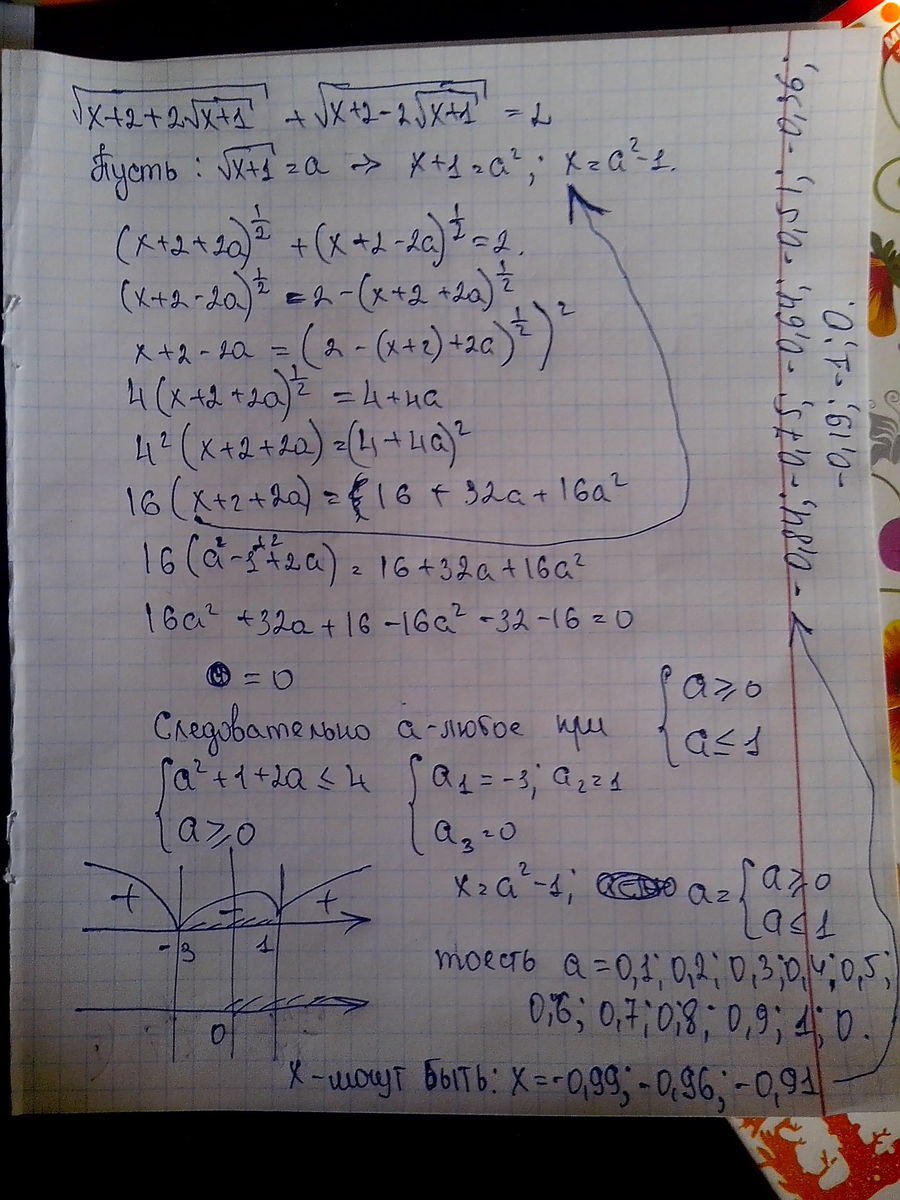 √(x+2+2√(x+1)) + √(x+2-2√(x+1)) = 2
Пусть : √(x+1) = a => x+1=a²; x=a²-1.
(x+2+2a)^½ + (x+2-2a)^½ = 2.
(x+2-2a)^½ = 2-(x+2+2a)^½
x+2-2a = (2-(x+2)+2a)^½)²
4(x+2+2a)^½ = 4+4a
4²(x+2+2a)=(4+4a)²
16(x+2+2a)= 16 + 32a+16a²
16(a²-1+2+2a) = 16+32a+16a²
16a² +32a+16-16a² -32-16=0
0 = 0
Следовательно a-любое при { a⩾0
a≤1
{ a²+1+2a≤4
a⩾0
{ a₁=-3; a₂=1
a₃=0
+ - +
-3 1
0
x=a²-1; a={ a⩾0
a≤1
тоесть a=0,1; 0,2; 0,3; 0,4; 0,5;
0,6; 0,7; 0,8; 0,9; 1; 0.
x-могут быть: x=-0,99; -0,96; -0,91
-0,84; -0,75; -0,64; -0,51; -0,36;
-0,19; -1; 0.